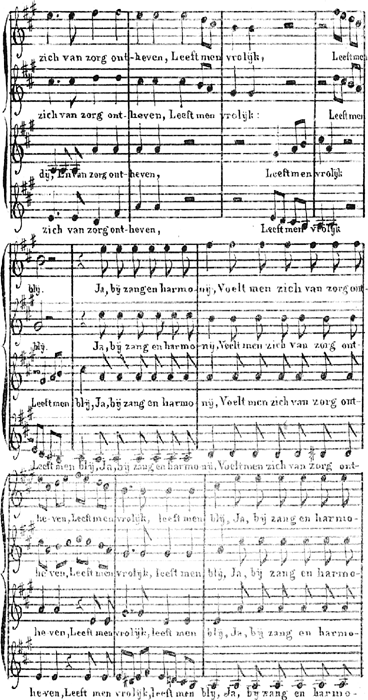 zich van zorg ont-heven, Leeft men vrolijk, Leeft men
zich van zorg ont-heven, Leeft men vrolijk: Leeft men
dij, En van zorg ont-heven, Leeft men vrolijk
zich van zorg ont-heven, Leeft men vrolijk
blij. Ja, bij zang en harmo-nij, Voelt men zich van zorg ont-
blij. Ja, bij zang en harmo-nij, Voelt men zich van zorg ont-
Leeft men blij, Ja, bij zang en harmo-nij, Voelt men zich van zorg ont-
Leeft men blij, Ja, bij zang en harmo-nij, Voelt men zich van zorg ont-
he-ven, Leeft men vrolijk, leeft men blij, Ja, bij zang en harmo-
he-ven, Leeft men vrolijk, leeft men blij, Ja, bij zang en harmo-
he-ven, Leeft men vrolijk, leeft men blij, Ja, bij zang en harmo-
he-ven, Leeft men vrolijk, leeft men blij, Ja, bij zang en harmo-